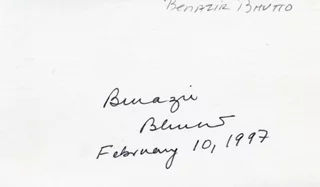 BENAZIR BHUTTO
Benazir
Bhutto
February 10, 1997